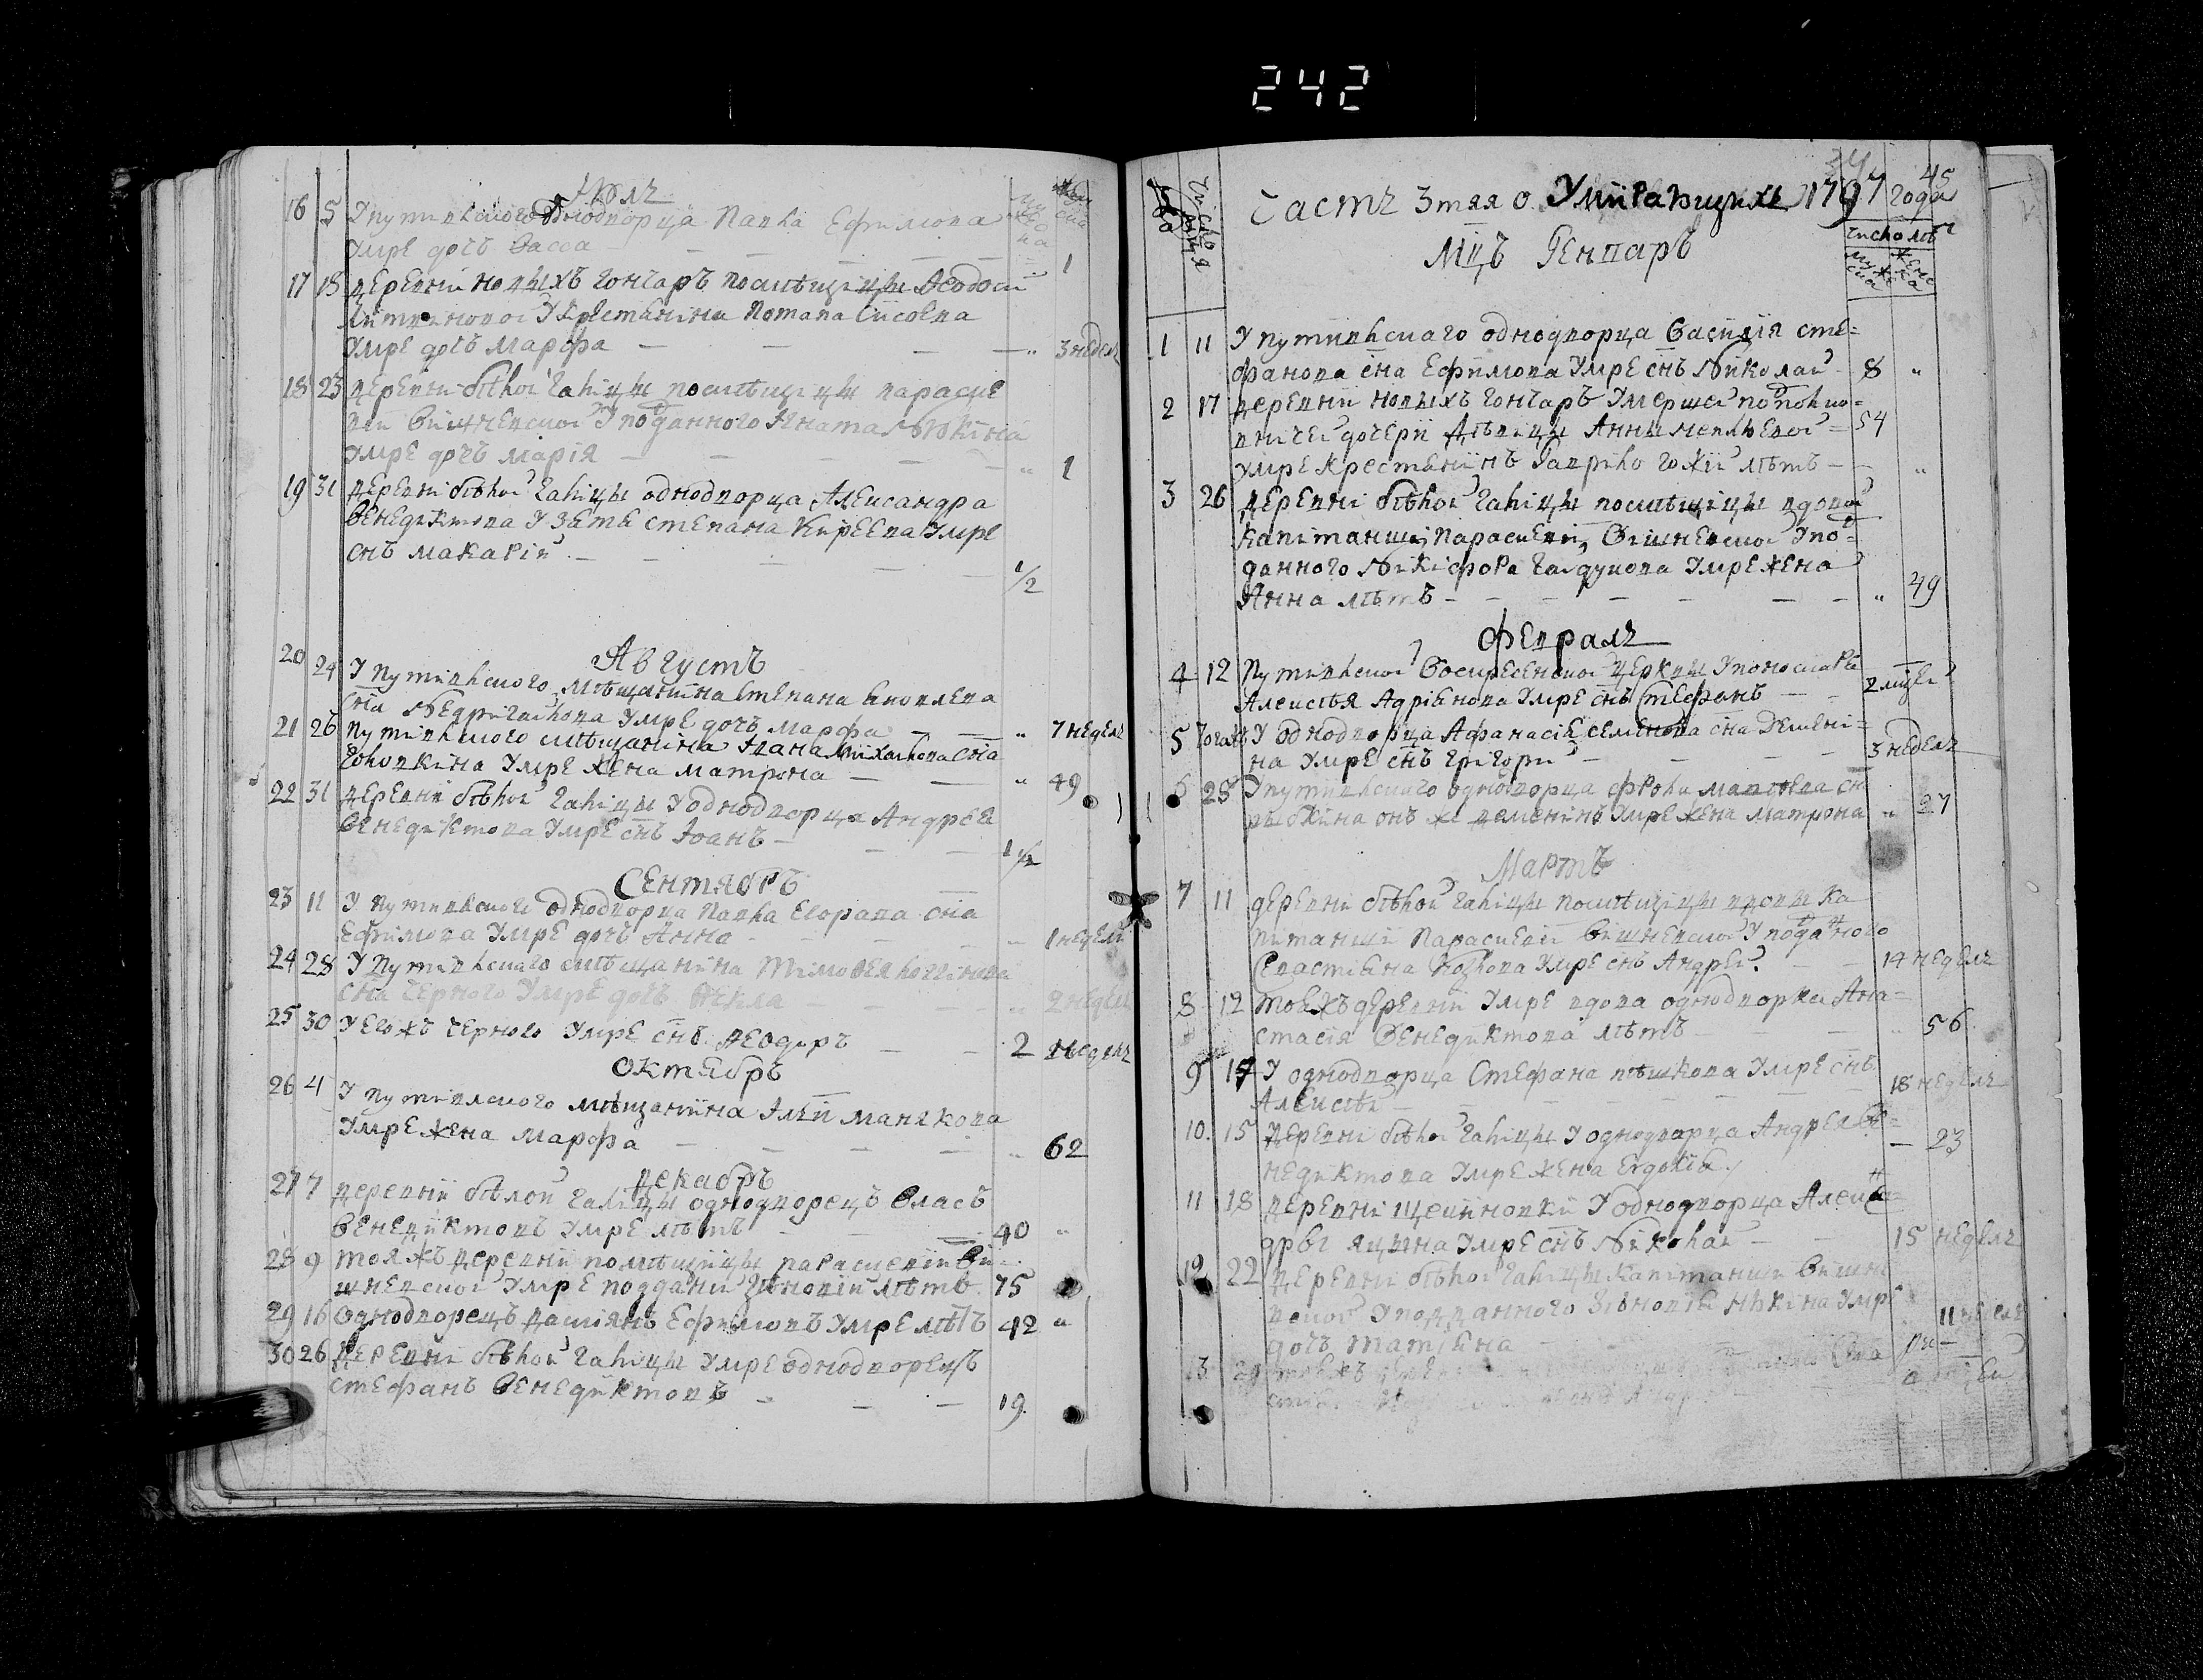 242
Июль
16 5 У путивлского однодворца Павла Ефимова
умре дочъ Васса — 1
17 18 деревни новыхъ гончаръ помѣщицы Ѳеодоси
Литвиновой у крестянина Потапа Сисоева
умре дочъ Марфа — „ 3 недел
18 23 деревни бѣлой галицы помѣщицы параске
вїи Вишневской у подданного Игната
умре дочъ марїя — „ 1
19 31 деревни бѣлой галицы однодворца Александра
Венедиктова у зятя степана Кирѣева умре
снъ макарїй — 1/2
Августъ
20 24 У путивлского мѣщанина Степана Яковлева
сна Недригайлова умре дочъ марфа — „ 7 недель
21 26 путивлского мѣщанина Ивана Михайлова сна
Головкина умре жена матрона — „ 49
22 31 деревни бѣлой галицы у однодворца Андрея
Венедиктова умре снъ Іоанъ — 1 1/2
Сентябръ
23 11 У путивлского однодворца Павла Егорова сна
Ефимова умре дочъ Анна — „ 1 недели
24 28 У путивлскаго мѣщанина Тимоѳея логвинова
сна Черного умре дочъ Ѳекла — „ 2 недели
25 30 У егожъ Черного умре снъ Ѳеодоръ — 2 недель
Октябръ
26 4 У путивлского мѣщанина Ілїи манякова
умре жена марфа — „ 62
декабръ
27 7 деревнїй бѣлой галицы однодворецъ Власъ
Венедиктовъ умре лѣтъ — 40 „
28 9 тояжъ деревнїй помѣщицы параскевїи Ви-
шневской умре подданій Зѣновїй лѣтъ 75
29 16 Однодворецъ дамїянъ Ефимовъ умре лѣтъ 42 „
30 26 Деревни бѣлой галицы умре однодворецъ
стефанъ Венедиктовъ — 19
34 45
Часть 3тая о Умїрающихъ 1797 года
Число лѣтъ
Мцъ Генваръ
Число дня
мужеска женска
1 11 У путивлскаго однодворца Василїя сте=
фанова сна Ефимова умре снъ Николай 8 „
2 17 деревнїй новыхъ гончаръ умершей подполко=
вничей дочери дѣвицы Анны
умре крестянїнъ Гаврїло лѣтъ — 54 „
3 26 деревни бѣлой галицы помѣщицы вдовой
капитанши Параскевїи Вишневской у под=
данного Никифора Гайдукова умре жена
Анна лѣтъ — „ 49
Февраль
4 12 Путивлской Воскресенской церквы у пономаря
Алексѣя Адрїянова умре снъ Стефанъ — 2 мцей
5 тогожъ У однодворца Афанасїя семенова сна Деменї=
на умре снъ григорїй — 3 недель
6 28 У путивлскаго однодворца фрола матвѣева сна
онъ же деменїнъ умре жена матрона „ 27
Мартъ
7 11 деревни бѣлой галицы помѣщицы вдовы ка
питанши Параскевїи Вишневской у подданного
Севастїяна Козлова умре снъ Андрей — 14 недель
8 12 тояжъ деревнїй умре вдова однодворка Ана=
стасїя Венедиктова лѣтъ „ 56
9 14 У однодворца Стефана пѣшкова умре снъ
Алексѣй — 18 недель
10. 15 деревни бѣлой галицы у однодворца Андрея Ве=
недиктова умре жена Евдокїя — 23
11 18 деревни Щекиновки у однодворца Алекса=
ндры яцына умре снъ Николай — 15 недель
12 22 деревни бѣлой галицы капитанши Вишне
вской у подданного Зѣновїя умре
дочъ татїяна — 11 недель
13